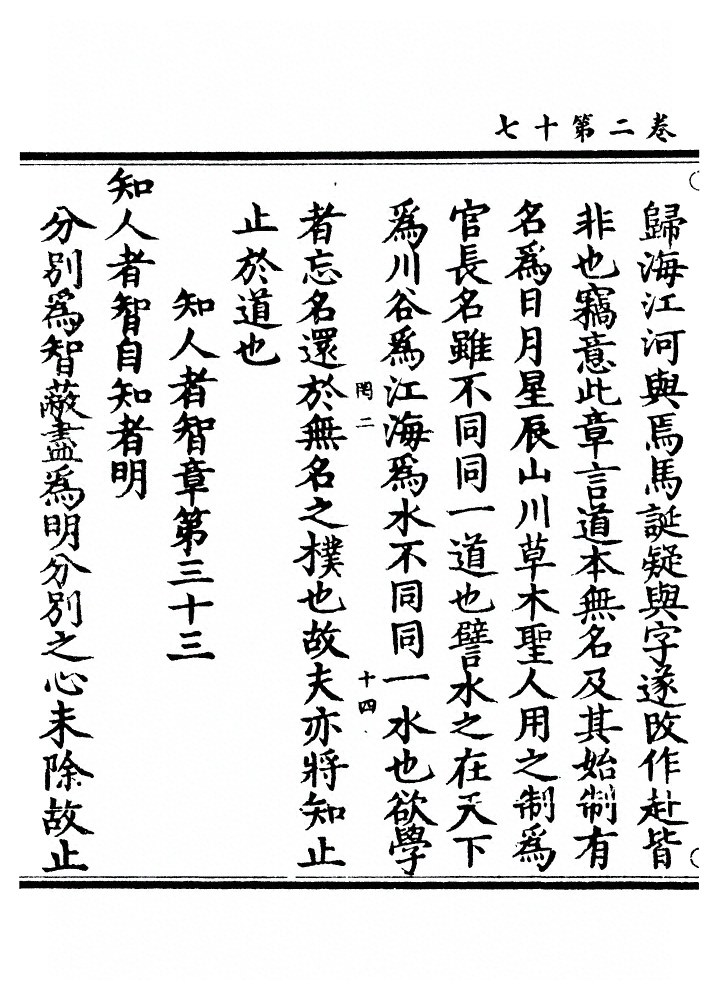 七十第二卷
歸海江河與焉馬誕疑與字遂改作赴皆
非也竊意此章言道本無名及其始制有
名爲日月星辰山川草木聖人用之制爲
官長名雖不同同一道也譬水之在天下
爲川谷爲江海爲水不同同一水也欲學
罔二
十四
者忘名還於無名之樸也故夫亦將知止
止於道也
知人者智章第三十三
知人者智自知者明
分別爲智蔽盡爲明分別之心未除故止